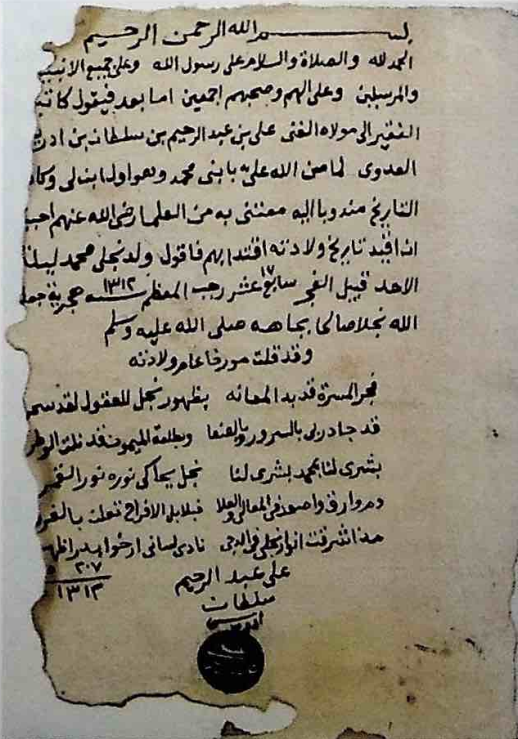 بسم الله الرحمن الرحيم
الحمد لله والصلاة والسلام على رسول الله وعلى جميع الانبيـ
والمرسلين وعلى الهم وصحبهم اجمعين اما بعد فيقول كاتبـ
الفقير الى مولاه الغنى على بن عبد الرحيم بن سلطان بن ادريـ
العدوى لما من الله على بابنى محمد وهو اول ابن لى وكان
التاريخ مندوبا اليه معتنى به من العلما رضى الله عنهم احببـ
ان اقيد تاريخ ولادته اقتدا بهم فاقول ولد نجلى محمد ليلة
الاحد قبيل الفجر سابع عشر ١٧ رجب المعظم سنة ١٣١٢ هجرية جعلـ
الله نجلا صالحا بجاهه صلى الله عليه وسلم
وقد قلت مورخا عام ولادته
فجر المسرة قد بدا لمعانه بظهور نجل للعقول لقد سحر
قد جاد لى بالسرور وبطلعة الميمون قد نلت الوطر
بشرى لنا بمحمد بشرى لنا نجل يحاكى نوره نور القمر
دم وارق واصعد فى المعالى والعلا فبلابل الافراح
مذ اشرقت انوار نجلى فى الدجى نادى لسانى ارخوا بدر ظهر
٢٠٧
١٣١٢
على عبد الرحيم
سلطان